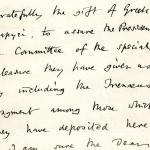 gratefully the gift of Greek
papyri, to assure the President
Committee of the special
pleasure they have given us
by including the Treasure
among those which
they have deposited here
I am sure the Dean